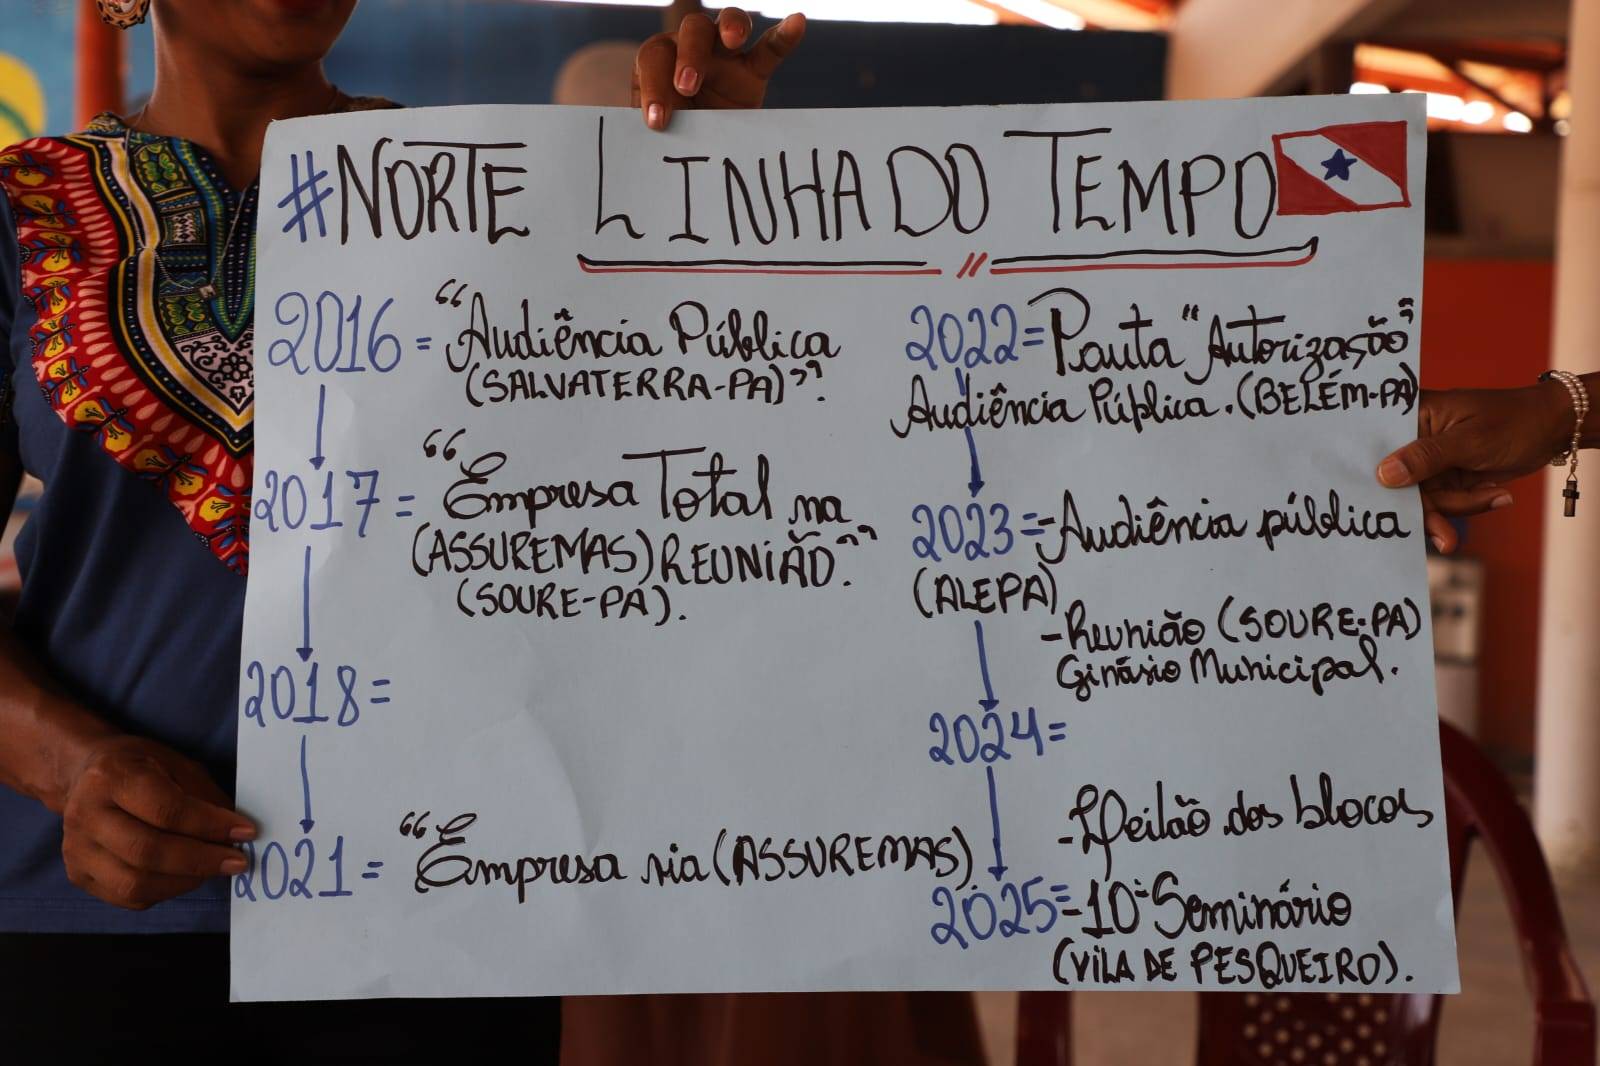 #NORTE LINHA DO TEMPO
2016 = "Audiência Pública
(SALVATERRA-PA)".
2017 = "Empresa Total na
(ASSUREMAS) REUNIÃO".
(SOURE-PA).
2018 =
2021 = "Empresa via (ASSUREMAS)
2022 = Pauta "Autorização"
Audiência Pública. (BELÉM-PA)
2023 = - Audiência pública
(ALEPA)
- Reunião (SOURE-PA)
Ginásio Municipal.
2024 =
- Leilão dos blocos
2025 = - 10º Seminário
(VILA DE PESQUEIRO).